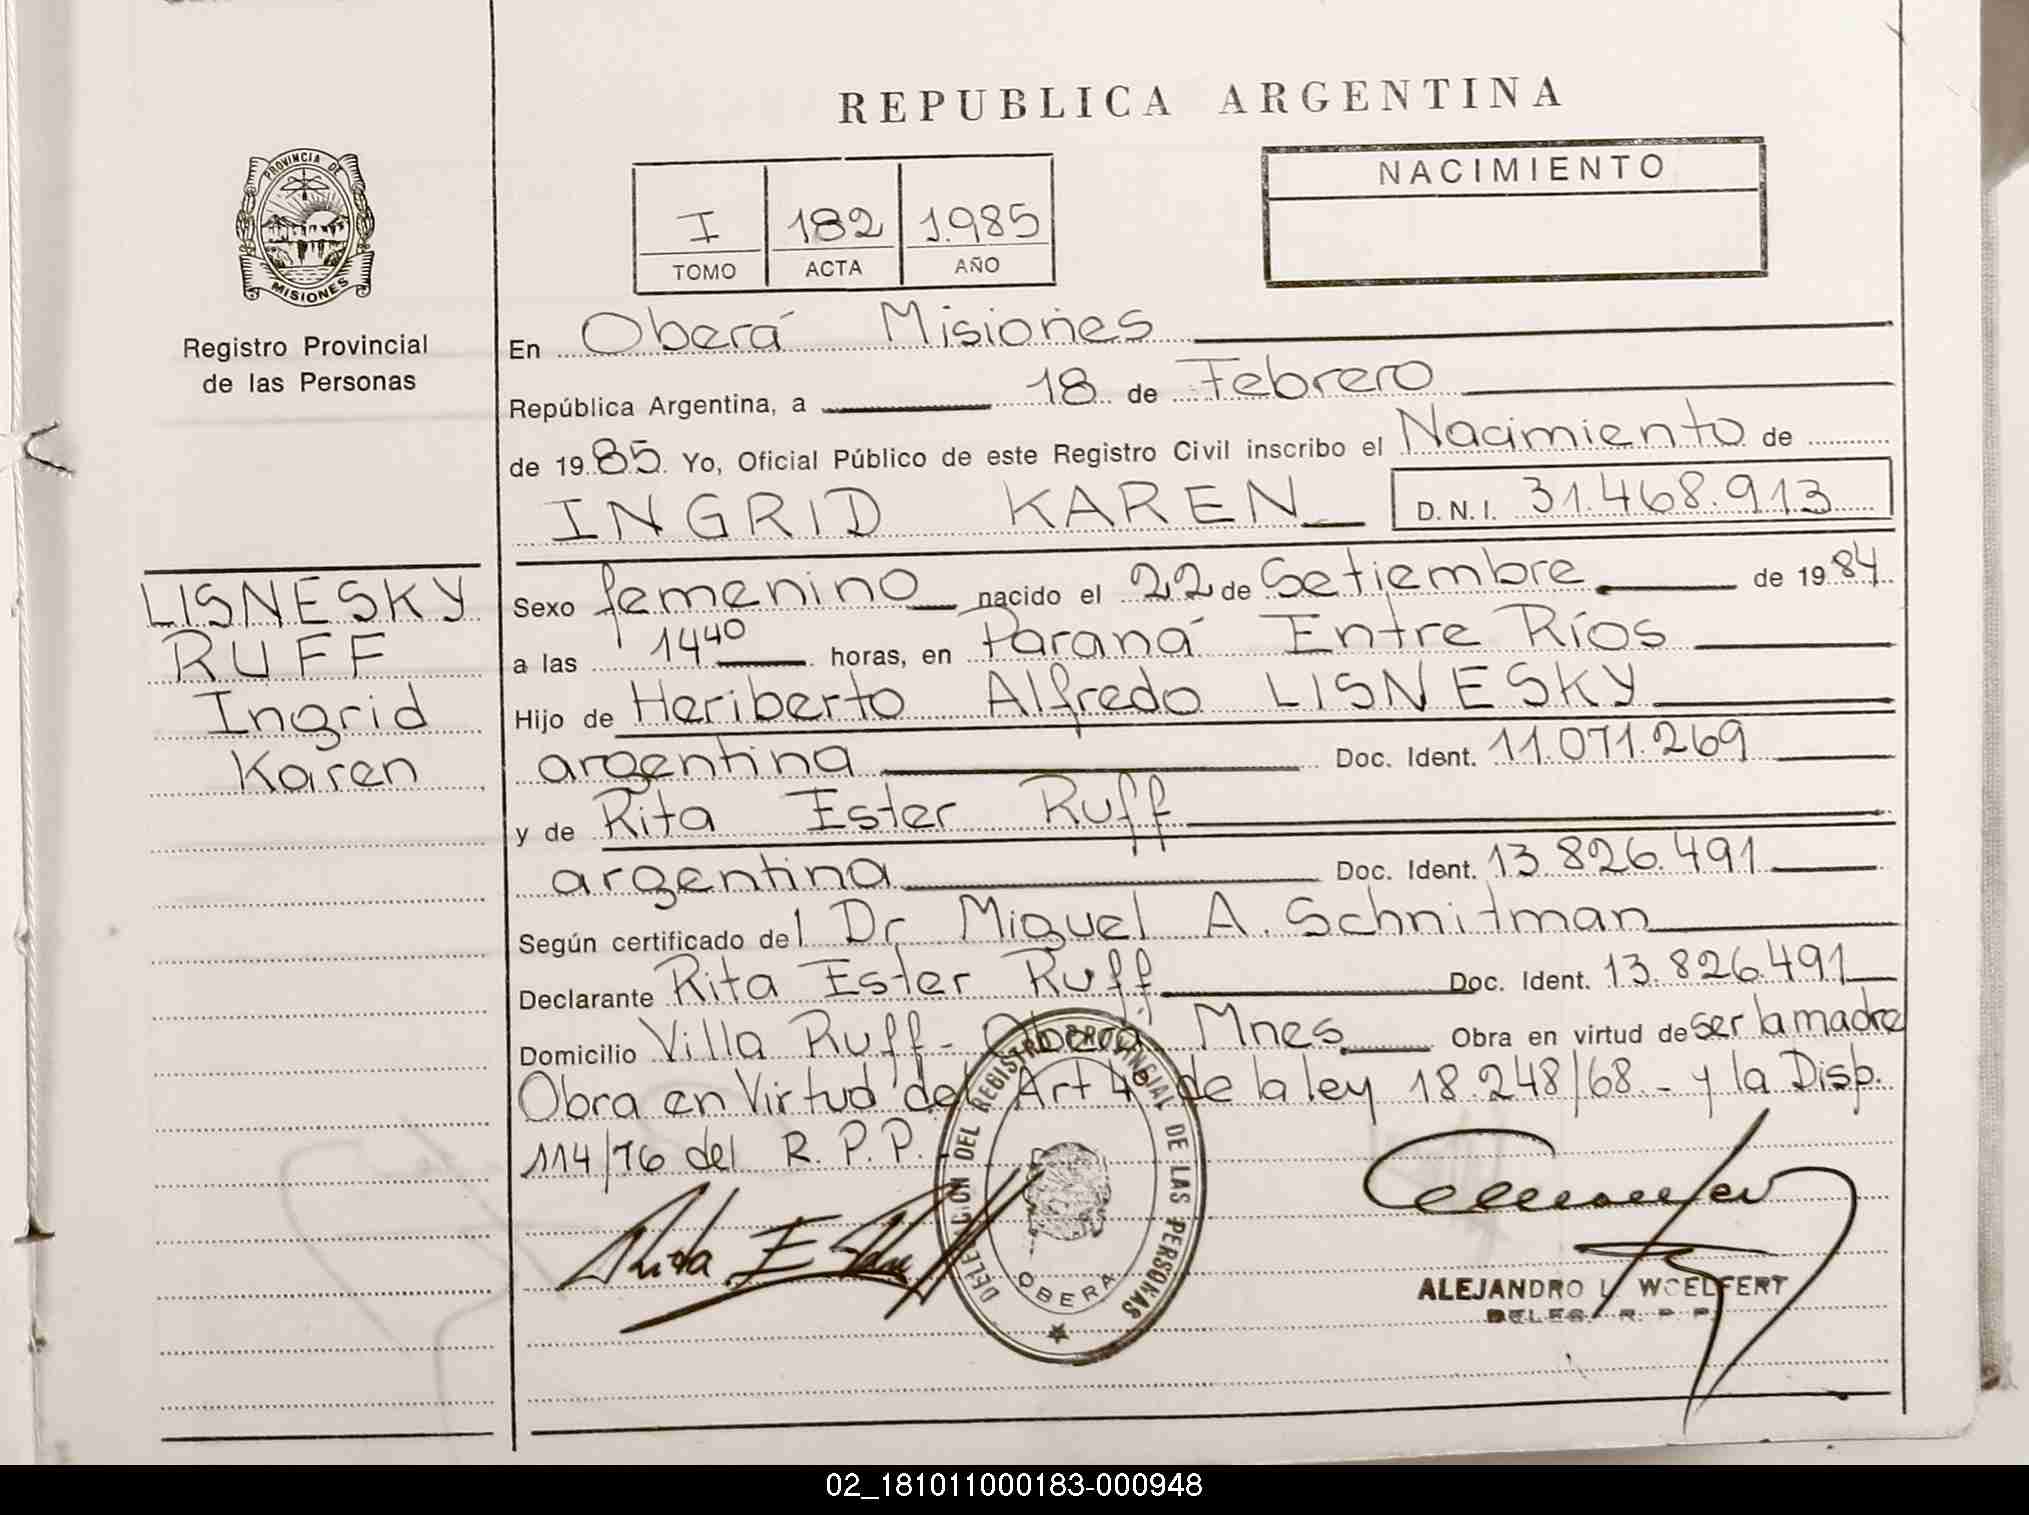 REPUBLICA ARGENTINA
PROVINCIA DE MISIONES
Registro Provincial
de las Personas
I 182 1.985
TOMO ACTA AÑO
NACIMIENTO
En Oberá Misiones
República Argentina, a 18 de Febrero
de 19 85 Yo, Oficial Público de este Registro Civil inscribo el Nacimiento de
INGRID KAREN D.N.I. 31.468.913
LISNESKY
RUFF
Ingrid
Karen
Sexo femenino nacido el 22 de Setiembre de 19 84
a las 14 40 horas, en Paraná Entre Ríos
Hijo de Heriberto Alfredo LISNESKY
argentina Doc. Ident. 11.071.269
y de Rita Ester Ruff
argentina Doc. Ident. 13.826.491
Según certificado del Dr Miguel A. Schnitman
Declarante Rita Ester Ruff Doc. Ident. 13.826.491
Domicilio Villa Ruff - Oberá Mnes Obra en virtud de ser la madre
Obra en Virtud del Art 4º de la ley 18.248/68 - y la Disp.
114/76 del R.P.P. -
DELEGACION DEL REGISTRO PROVINCIAL DE LAS PERSONAS
OBERA
ALEJANDRO L. WOELFERT
DELEG. R. P. P.
02_181011000183-000948